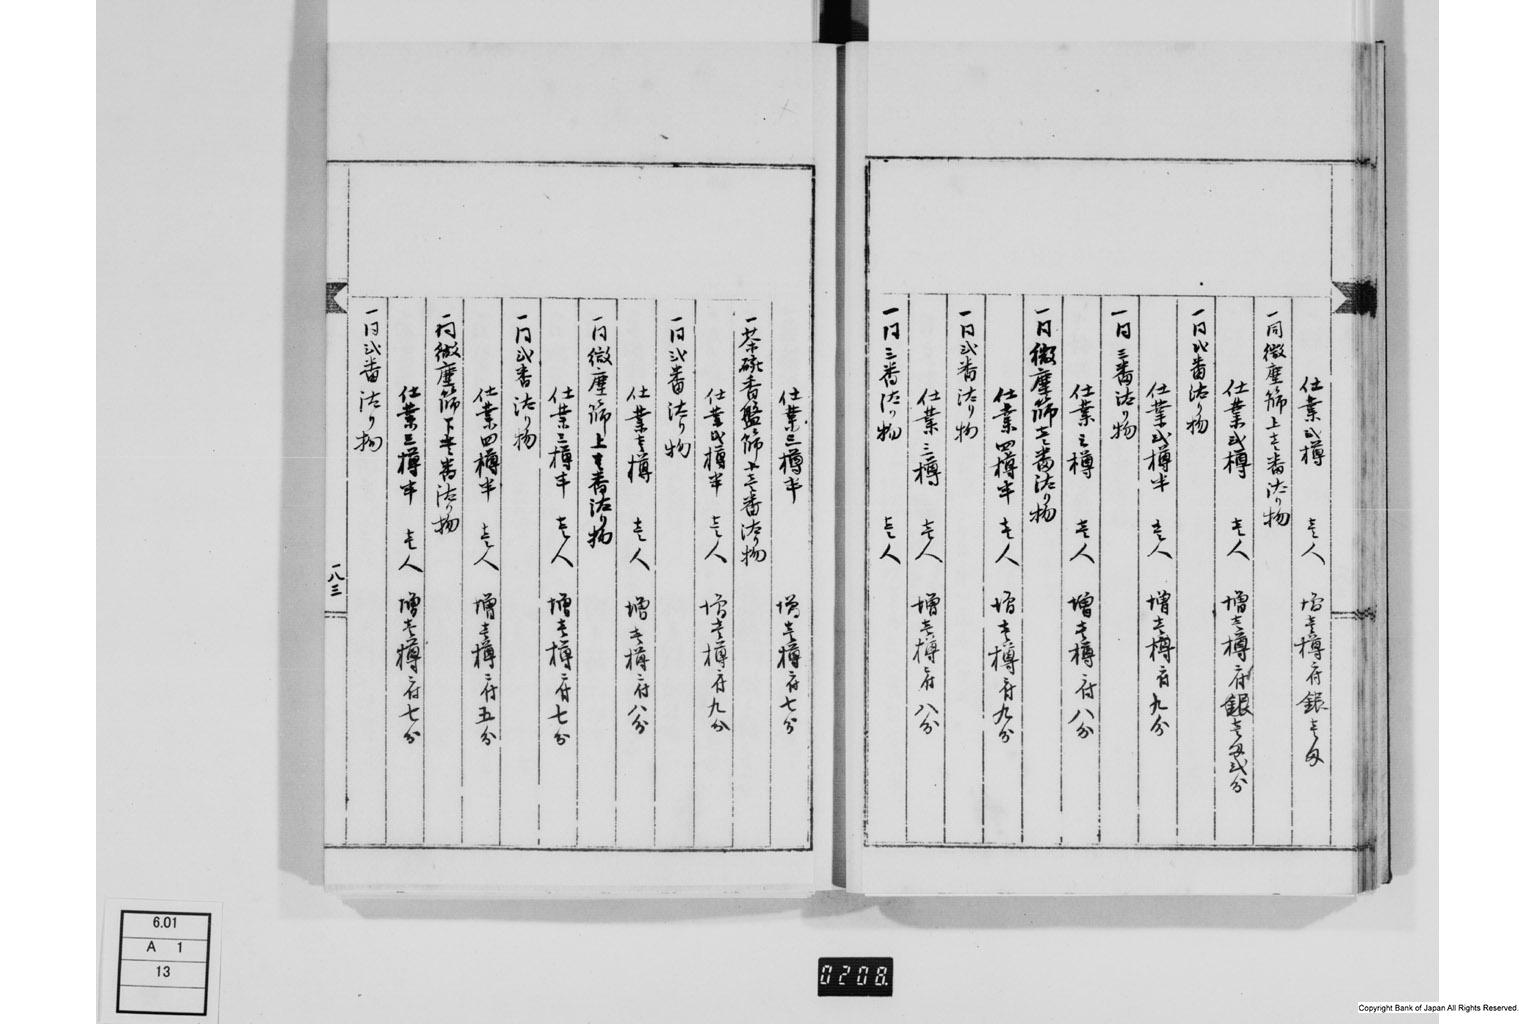 仕業弐樽 壱人 増壱樽ニ付銀壱匁
一同微塵篩上壱番汰り物
仕業弐樽 壱人 増壱樽ニ付銀壱匁弐分
一同弐番汰り物
仕業弐樽半 壱人 増壱樽ニ付九分
一同三番汰り物
仕業三樽 壱人 増壱樽ニ付八分
一同微塵篩壱番汰り物
仕業四樽半 壱人 増壱樽ニ付九分
一同弐番汰り物
仕業三樽 壱人 増壱樽ニ付八分
一同三番汰り物 壱人
仕業三樽半 増壱樽ニ付七分
一茶碗香盤篩上壱番汰り物
仕業弐樽半 壱人 増壱樽ニ付九分
一同弐番汰り物
仕業壱樽 壱人 増壱樽ニ付八分
一同微塵篩上壱番汰り物
仕業三樽半 壱人 増壱樽ニ付七分
一同弐番汰り物
仕業四樽半 壱人 増壱樽ニ付五分
一同微塵篩下壱番汰り物
仕業三樽半 壱人 増壱樽ニ付七分
一同弐番汰り物
一八三
6.01
A 1
13
0208.
Copyright Bank of Japan All Rights Reserved.